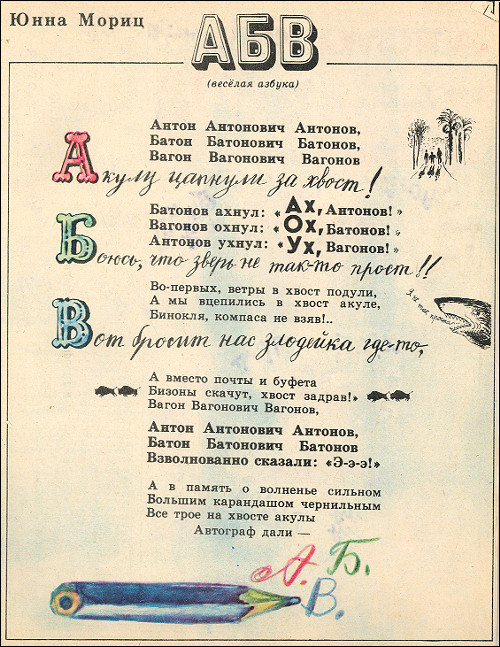 Юнна Мориц
АБВ
(весёлая азбука)
Антон Антонович Антонов,
Батон Батонович Батонов,
Вагон Вагонович Вагонов
Акулу цапнули за хвост!
Батонов ахнул: «Ах, Антонов!»
Вагонов охнул: «Ох, Батонов!»
Антонов ухнул: «Ух, Вагонов!»
Боюсь, что зверь не так-то прост!!
Во-первых, ветры в хвост подули,
А мы вцепились в хвост акуле,
Бинокля, компаса не взяв!..
Я не так проста...
Вот бросит нас злодейка где-то,
А вместо почты и буфета
Бизоны скачут, хвост задрав!»
Вагон Вагонович Вагонов,
Антон Антонович Антонов,
Батон Батонович Батонов
Взволнованно сказали: «Э-э-э!»
А в память о волненье сильном
Большим карандашом чернильным
Все трое на хвосте акулы
Автограф дали —
А. Б.
В.